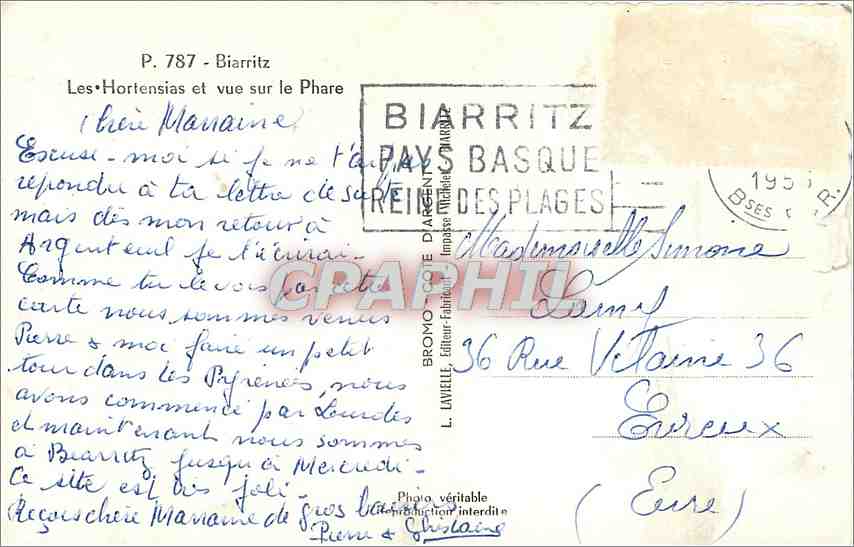 P. 787 - Biarritz
Les Hortensias et vue sur le Phare
Chère Marraine
Excuse-moi si je ne t'ai pas
répondu à ta lettre de suite
mais dès mon retour à
Argenteuil je t'écrirai -
Comme tu le vois par cette
carte nous sommes venus
Pierre & moi faire un petit
tour dans les Pyrénées, nous
avons commencé par Lourdes
et maintenant nous sommes
à Biarritz jusqu'à Mercredi -
Ce site est très joli -
Reçois chère Marraine de gros baisers
Pierre & Ghislaine
BIARRITZ
PAYS BASQUE
REINE DES PLAGES
BROMO - COTE D'ARGENT
L. LAVIELLE, Editeur-Fabricant, Impasse Michelet - BIARRITZ
195
BSES P
R.
Mademoiselle Simone
36 Rue Vilaine 36
Evreux
(Eure)
Photo véritable
Reproduction interdite
CPAPHIL